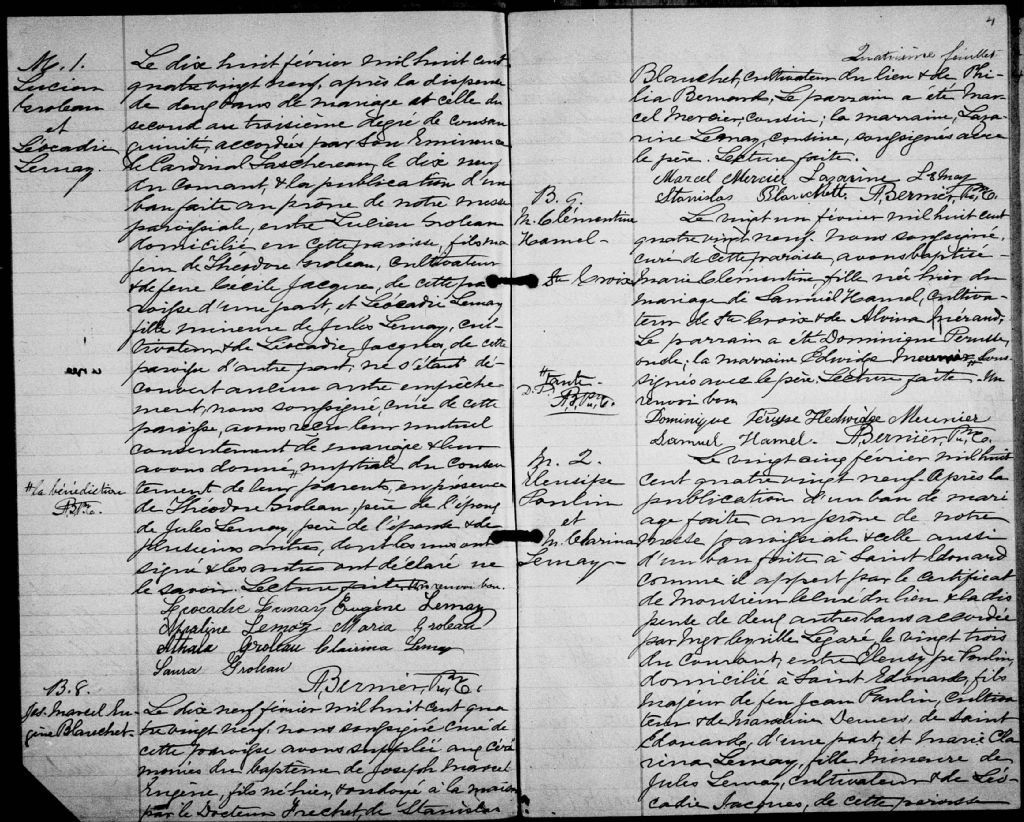 M. 1.
Lucien
Groleau
et
Léocadie
Lemay.
Le dix huit février mil huit cent
quatre vingt neuf, après la dispense
de deux bans de mariage et celle du
second au troisième degré de consan
guinité, accordées par Son Eminence
le Cardinal Taschereau, le dix neuf
du Courant, & la publication d'un
ban faite au prône de notre messe
paroissiale, entre Lucien Groleau
domicilié en cette paroisse, fils ma
jeur de Théodore Groleau, cultivateur
& de feue Cécile Jacques, de cette pa
roisse d'une part, et Léocadie Lemay
fille mineure de Jules Lemay, cul
tivateur & de Léocadie Jacques, de cette
paroisse d'autre part, ne s'étant dé
couvert aucun autre empêche
ment, nous soussigné, curé de cette
paroisse, avons reçu leur mutuel
consentement de mariage & leur
avons donné, nuptiale du consen
tement de leurs parents, en présence
de Théodore Groleau, père de l'époux
de Jules Lemay, père de l'épouse & de
plusieurs autres, dont les uns ont
signé & les autres ont déclaré ne
le savoir. Lecture faite. Un renvoi bon.
# la bénédiction
A.B. Ptre, C.
Léocadie Lemay Eugène Lemay
Lemay Maria Groleau
Groleau Clairina Lemay
Laura Groleau
A. Bernier, Ptre, C.
B. 8.
Jos. Marcel Eu
gène Blanchet-
Le dix neuf février mil huit cent qua
tre vingt neuf, nous soussigné Curé de
cette paroisse avons suppléé aux céré
monies du baptême de Joseph Marcel
Eugène, fils né hier, & ondoyé à la maison
par le Docteur Frechet, de Stanislas
4
Quatrième feuillet
Blanchet, cultivateur du lieu & de Phi-
lia Bernard. Le parrain a été Mar
cel Mercier, cousin; la marraine, Laza
rine Lemay, cousine, soussignés avec
le père. Lecture faite.
Marcel Mercier Lazarine Lemay
Stanislas Blanchette. A. Bernier, Ptre, C.
B. 9.
M. Clémentine
Hamel-
Ste Croix
Le vingt un février mil huit cent
quatre vingt neuf. nous soussigné,
curé de cette paroisse, avons baptisé
Marie Clémentine, fille née hier du
mariage de Samuel Hamel, cultiva-
teur de Ste Croix & de Alvina
Le parrain a été Dominique Perusse,
oncle, la marraine Edwidge Meunier # sous-
signés avec le père. Lecture faite - Un
renvoi bon
# tante
D. P.
A.B. Ptre, C.
Dominique Péruse Hedwidge Meunier
Samuel Hamel- A. Bernier, Ptre, C.
M. 2.
Eleusipe
Poulin
et
M. Clarina
Lemay-
Le vingt cinq février mil huit
cent quatre vingt neuf. Après la
publication d'un ban de mari
age faite au prône de notre
messe paroissiale & celle aussi
d'un ban faite à Saint Edouard
comme il appert par le certificat
de Monsieur le curé du lieu & la dis
pense de deux autres bans accordée
par Mgr Cyrille Légaré, le vingt trois
du courant, entre Eleusipe Poulin,
domicilié à Saint Edouard, fils
majeur de feu Jean Poulin, Cultiva
teur & de Demers, de Saint
Edouard, d'une part, et Marie Cla
rina Lemay, fille mineure de
Jules Lemay, cultivateur & de Léo-
cadie Jacques, de cette paroisse